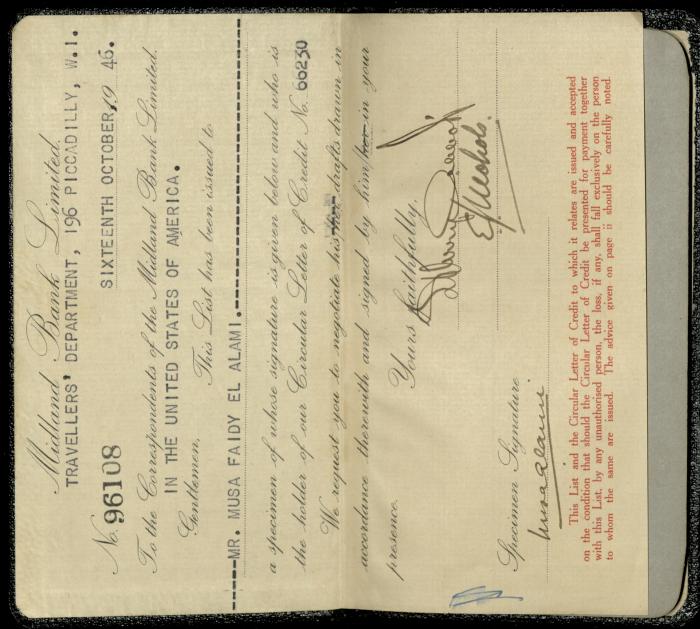 Midland Bank Limited.
TRAVELLERS' DEPARTMENT, 196 PICCADILLY, W.1.
No. 96108
SIXTEENTH OCTOBER, 19 46.
To the Correspondents of the Midland Bank Limited.
IN THE UNITED STATES OF AMERICA.
Gentlemen,
This List has been issued to
MR. MUSA FAIDY EL ALAMI.
a specimen of whose signature is given below and who is
the holder of our Circular Letter of Credit No. 66230
We request you to negotiate his drafts drawn in
accordance therewith and signed by him/her in your
presence.
Yours faithfully,
Specimen Signature
Musa Alami
This List and the Circular Letter of Credit to which it relates are issued and accepted
on the condition that should the Circular Letter of Credit be presented for payment together
with this List, by any unauthorised person, the loss, if any, shall fall exclusively on the person
to whom the same are issued. The advice given on page ii should be carefully noted.